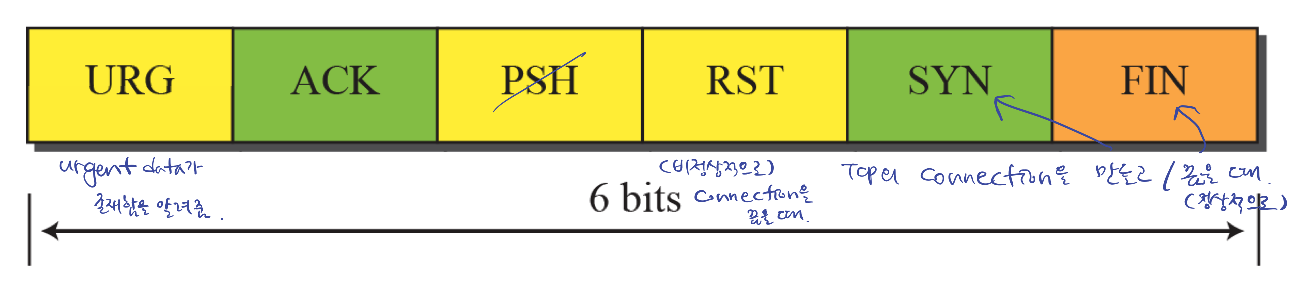 URG ACK PSH RST SYN FIN
urgent data가
존재함을 알려줌.
(비정상적으로)
connection을
끊을 때.
TCP의 connection을 만들고 / 끊을 때.
(정상적으로)
6 bits